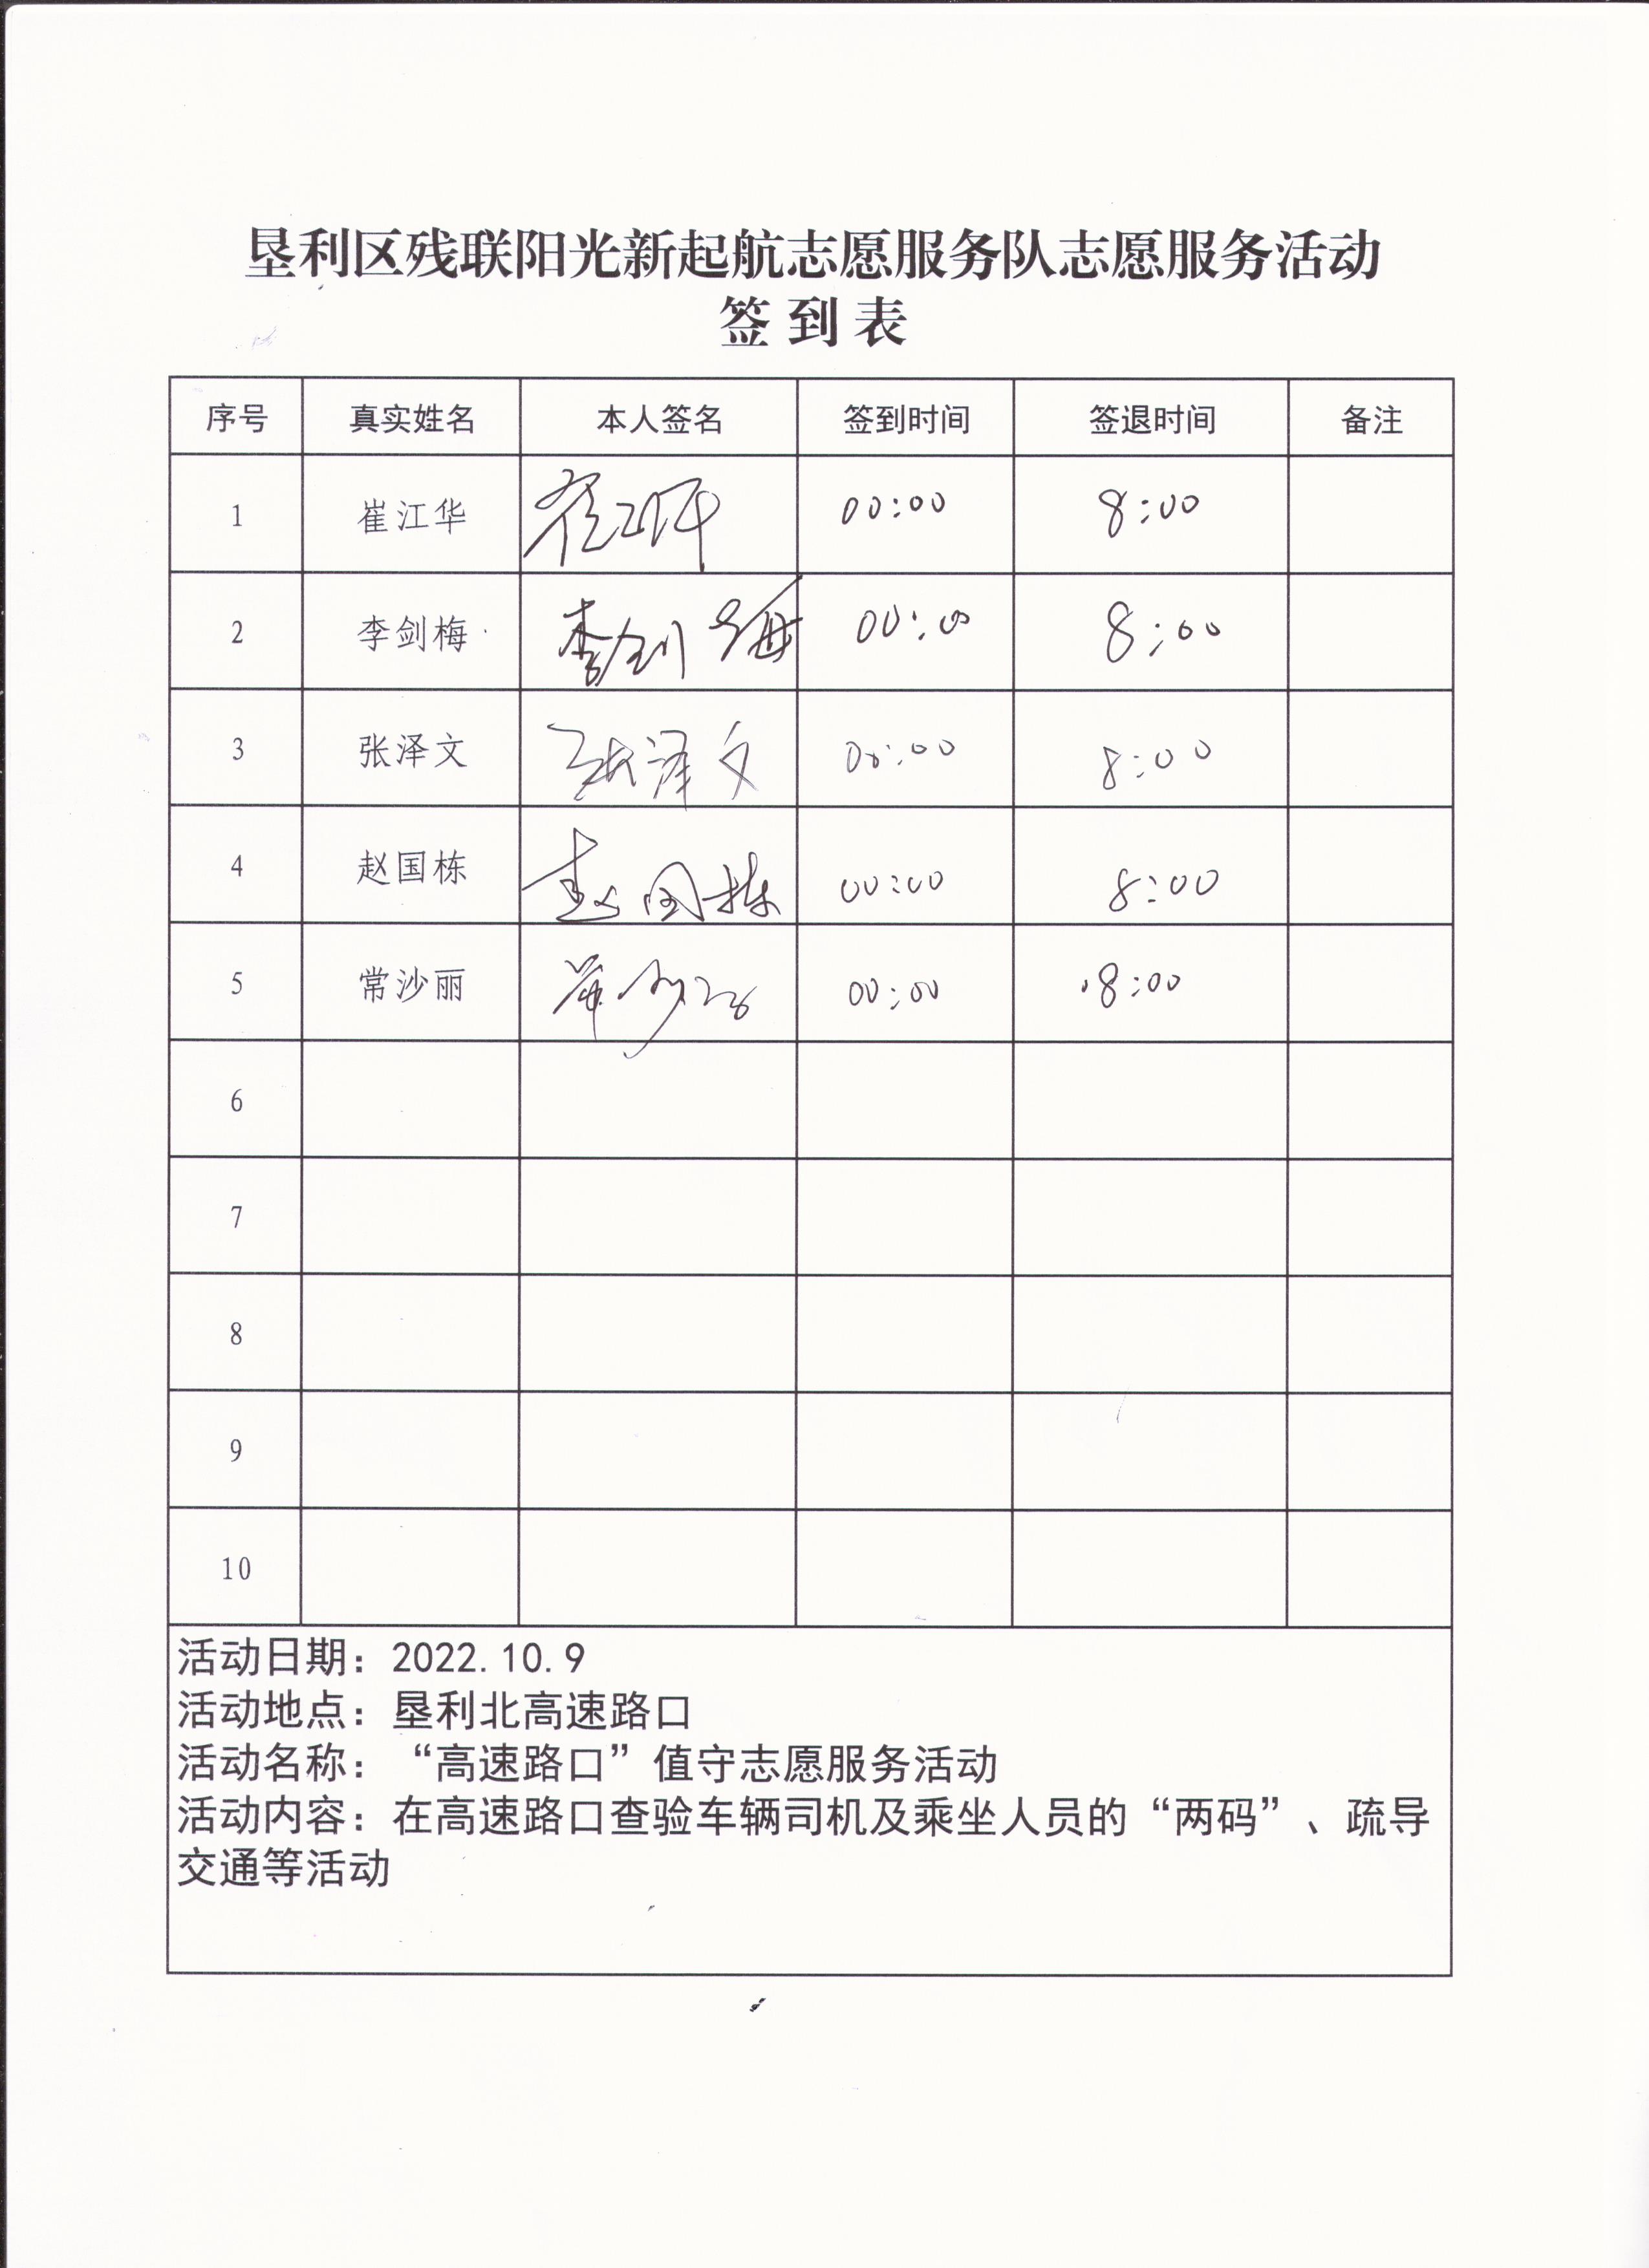 垦利区残联阳光新起航志愿服务队志愿服务活动
签到表
序号 真实姓名 本人签名 签到时间 签退时间 备注
1 崔江华 崔江华 00:00 8:00
2 李剑梅 李剑梅 00:00 8:00
3 张泽文 张泽文 00:00 8:00
4 赵国栋 赵国栋 00:00 8:00
5 常沙丽 常沙丽 00:00 8:00
6
7
8
9
10
活动日期：2022.10.9
活动地点：垦利北高速路口
活动名称：“高速路口”值守志愿服务活动
活动内容：在高速路口查验车辆司机及乘坐人员的“两码”、疏导
交通等活动